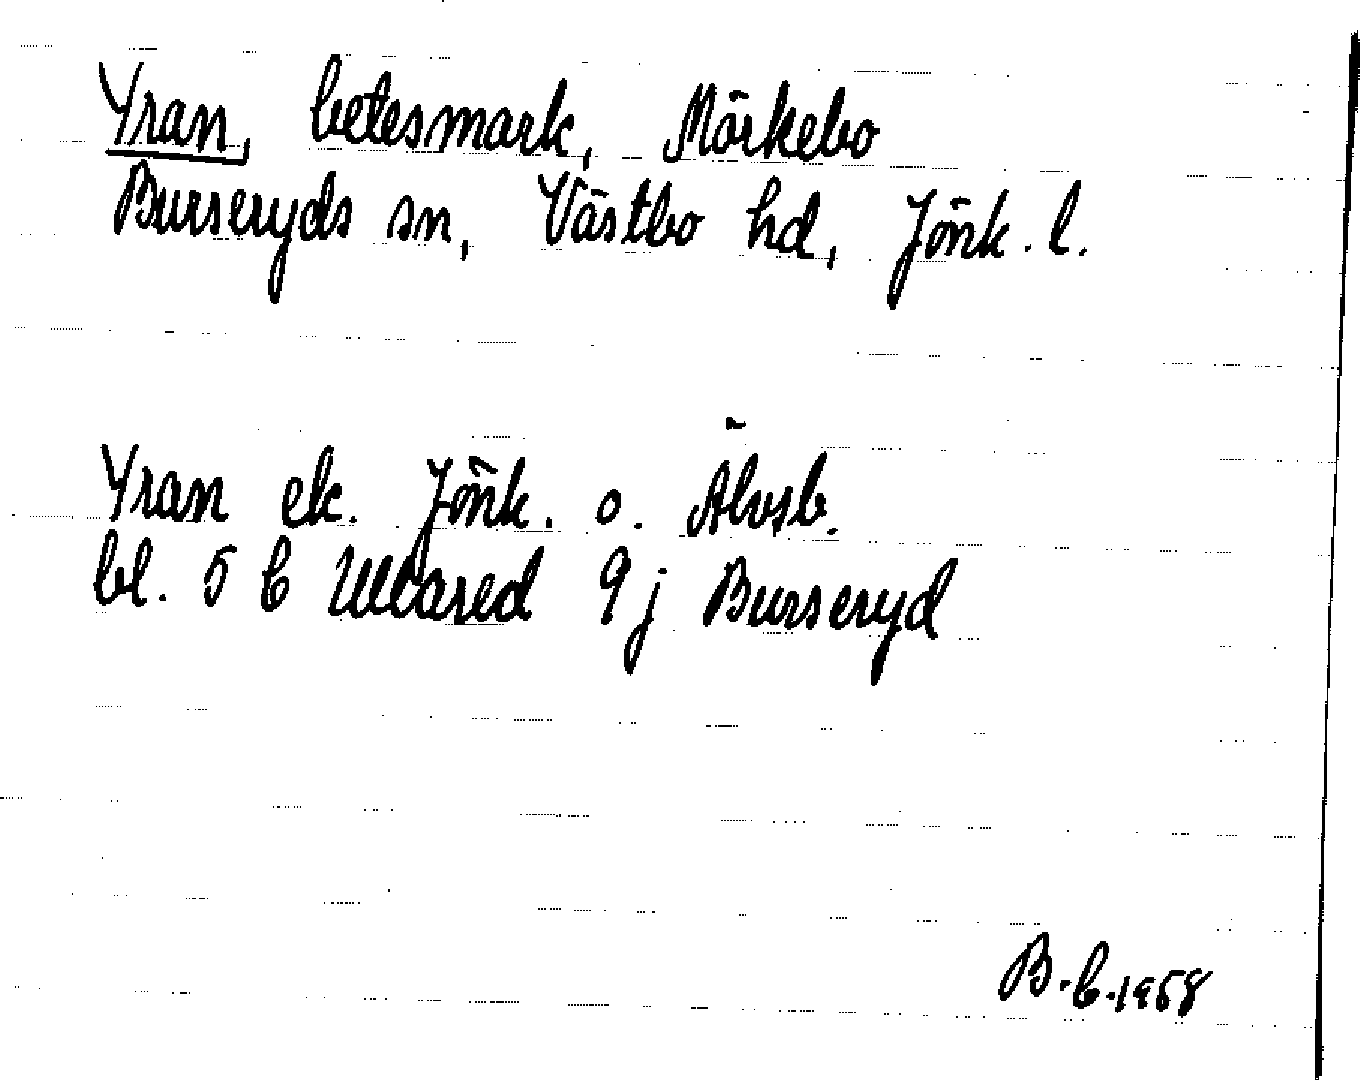 Yran, betesmark, Mörkebo
Burseryds sn, Västbo hd, Jönk. l.
Yran ek. Jönk. o. Älvsb.
bl. 5 C Ullared 9 j Burseryd
B.C. 1958